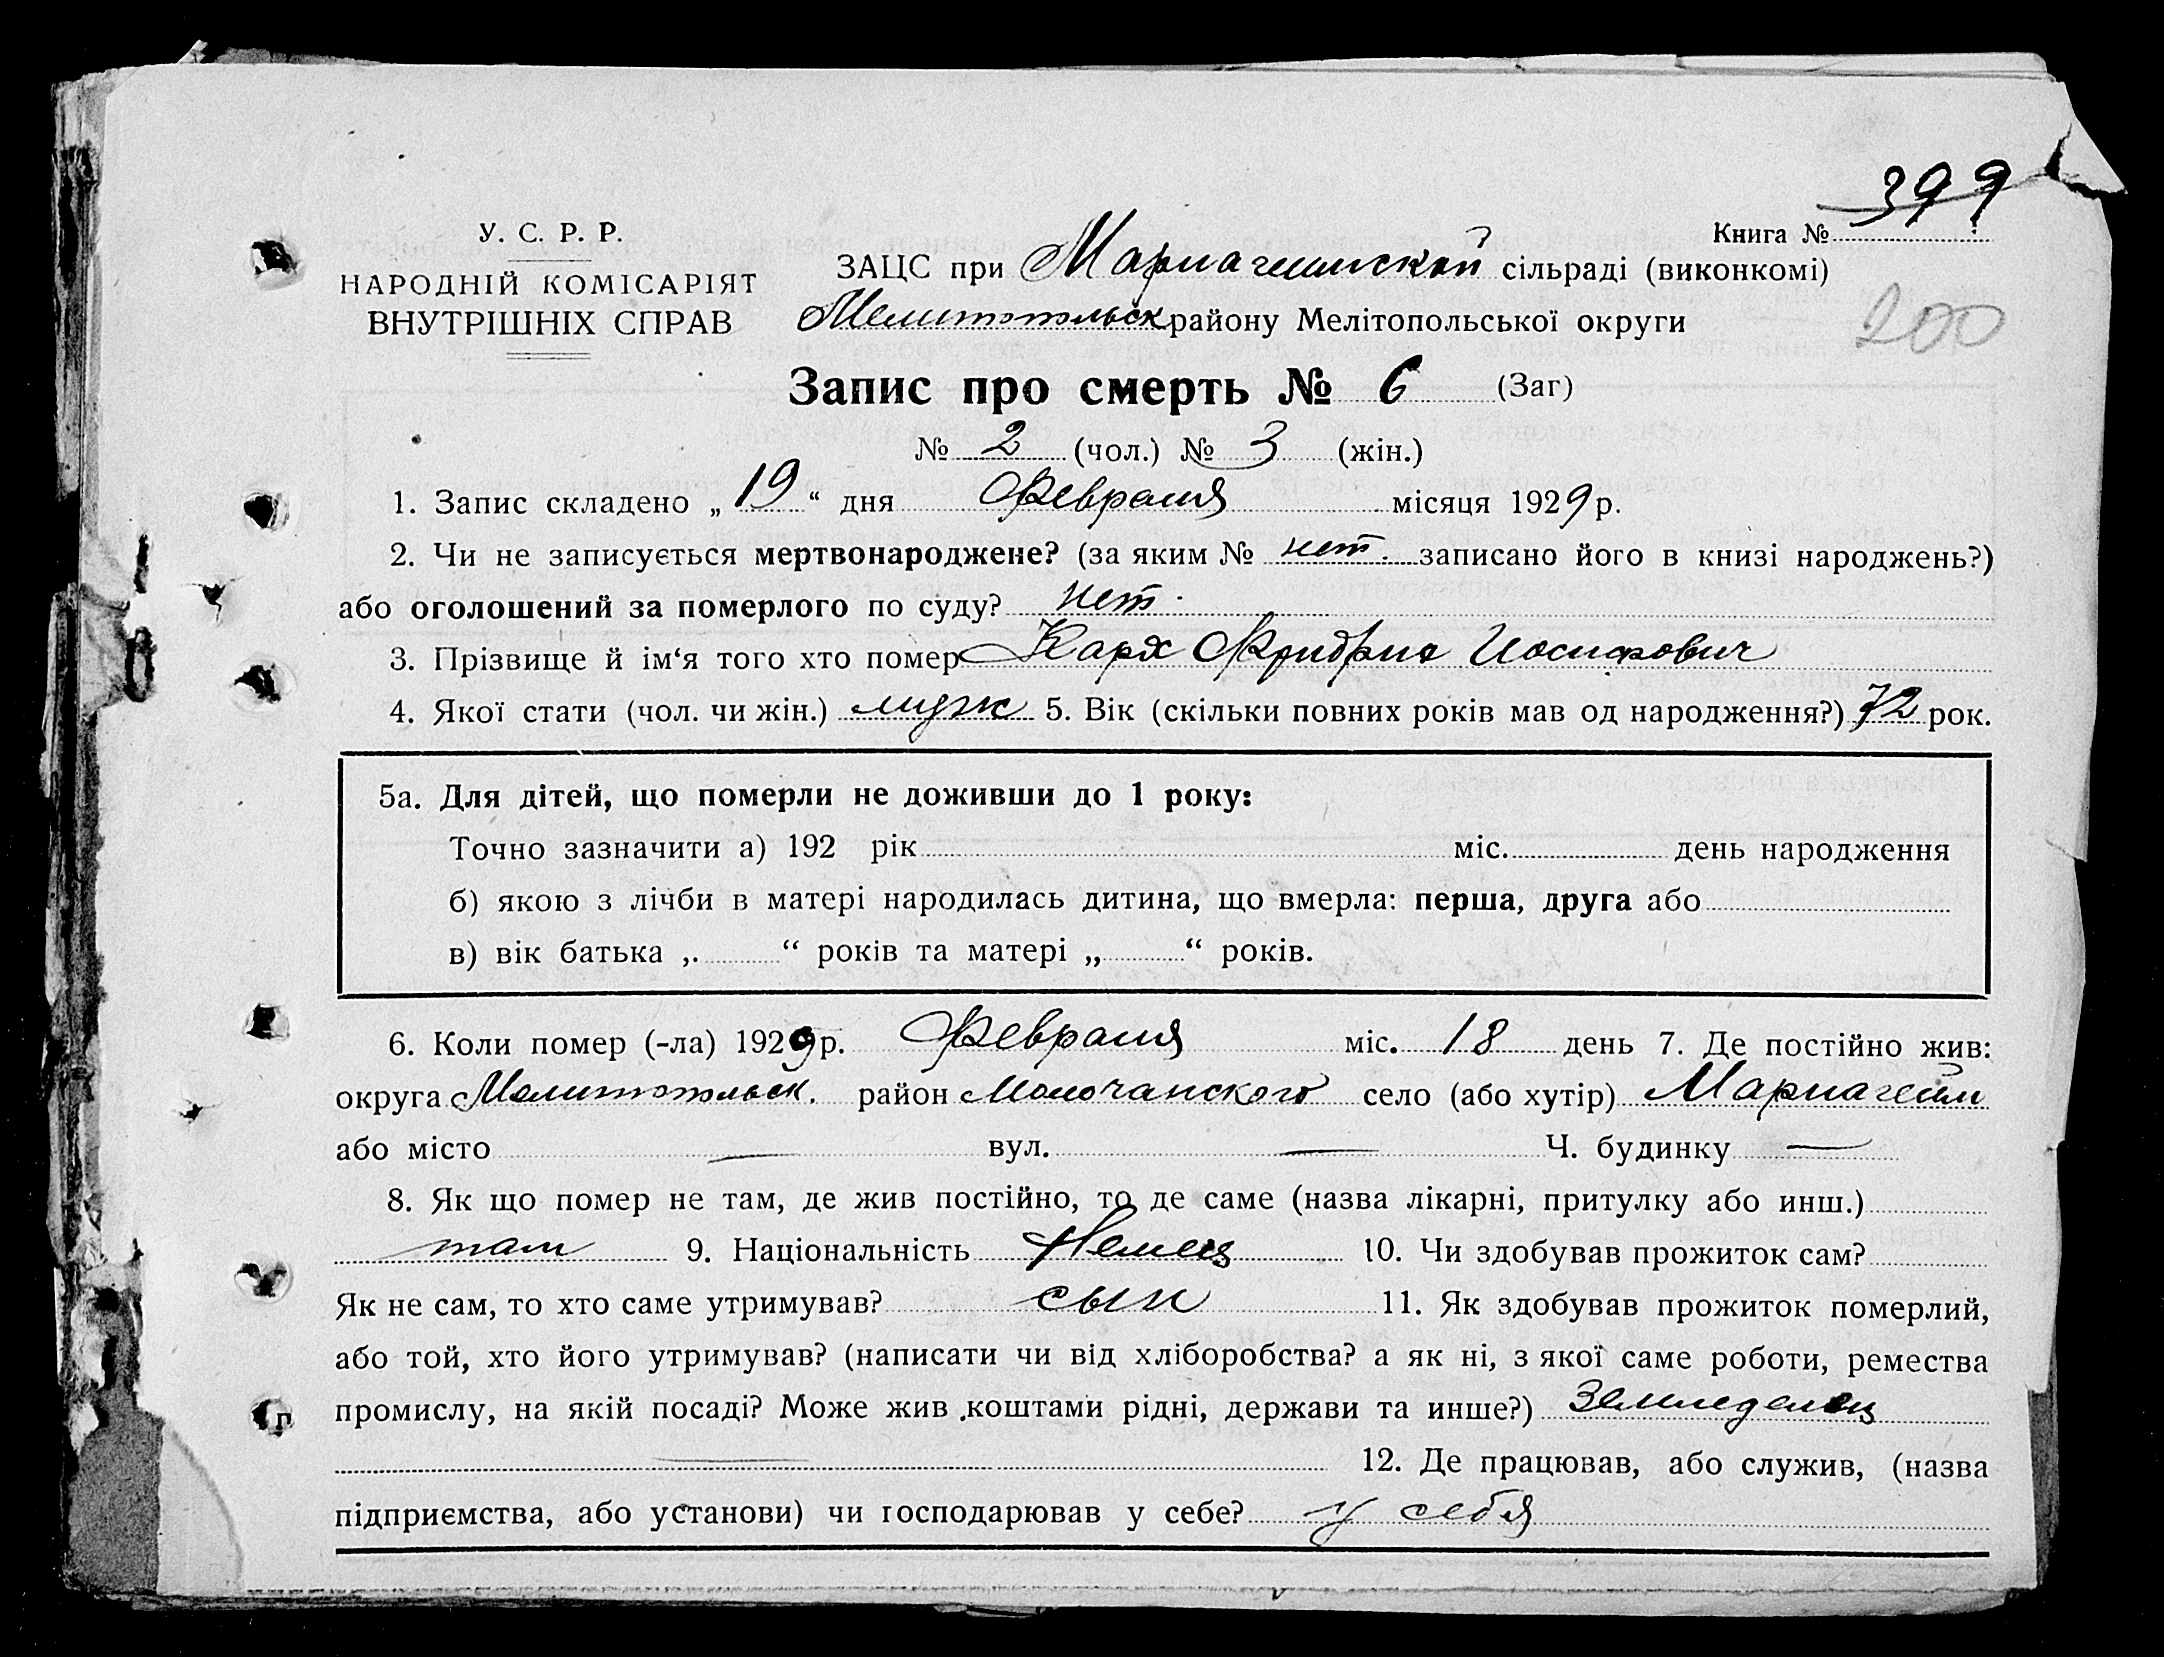 399
У. С. Р. Р.
Книга №
НАРОДНІЙ КОМІСАРІЯТ
ЗАЦС при Мариагеимской сільраді (виконкомі)
ВНУТРІШНІХ СПРАВ
Мелитопольск району Мелітопольської округи
200
Запис про смерть № 6 (Заг)
№ 2 (чол.) № 3 (жін.)
1. Запис складено „ 19 “ дня Февраля місяця 1929 р.
2. Чи не записується мертвонароджене? (за яким № нет. записано його в книзі народжень?)
або оголошений за померлого по суду? нет.
3. Прізвище й ім‘я того хто помер Иосифович
4. Якої стати (чол. чи жін.) мужс 5. Вік (скільки повних років мав од народження?) 72 рок.
5а. Для дітей, що померли не доживши до 1 року:
Точно зазначити а) 192 рік міс. день народження
б) якою з лічби в матері народилась дитина, що вмерла: перша, друга або
в) вік батька ,. “ років та матері „ “ років.
6. Коли помер (-ла) 1929 р. Февраля міс. 18 день 7. Де постійно жив:
округа Мелитопольск. район Молочанского село (або хутір) Мариагейм
або місто — вул. — Ч. будинку —
8. Як що помер не там, де жив постійно, то де саме (назва лікарні, притулку або инш.)
там 9. Національність Немец 10. Чи здобував прожиток сам?
Як не сам, то хто саме утримував? сын 11. Як здобував прожиток померлий,
або той, хто його утримував? (написати чи від хліборобства? а як ні, з якої саме роботи, ремества
промислу, на якій посаді? Може жив коштами рідні, держави та инше?) Земледелец
— 12. Де працював, або служив, (назва
підприємства, або установи) чи господарював у себе? у себя